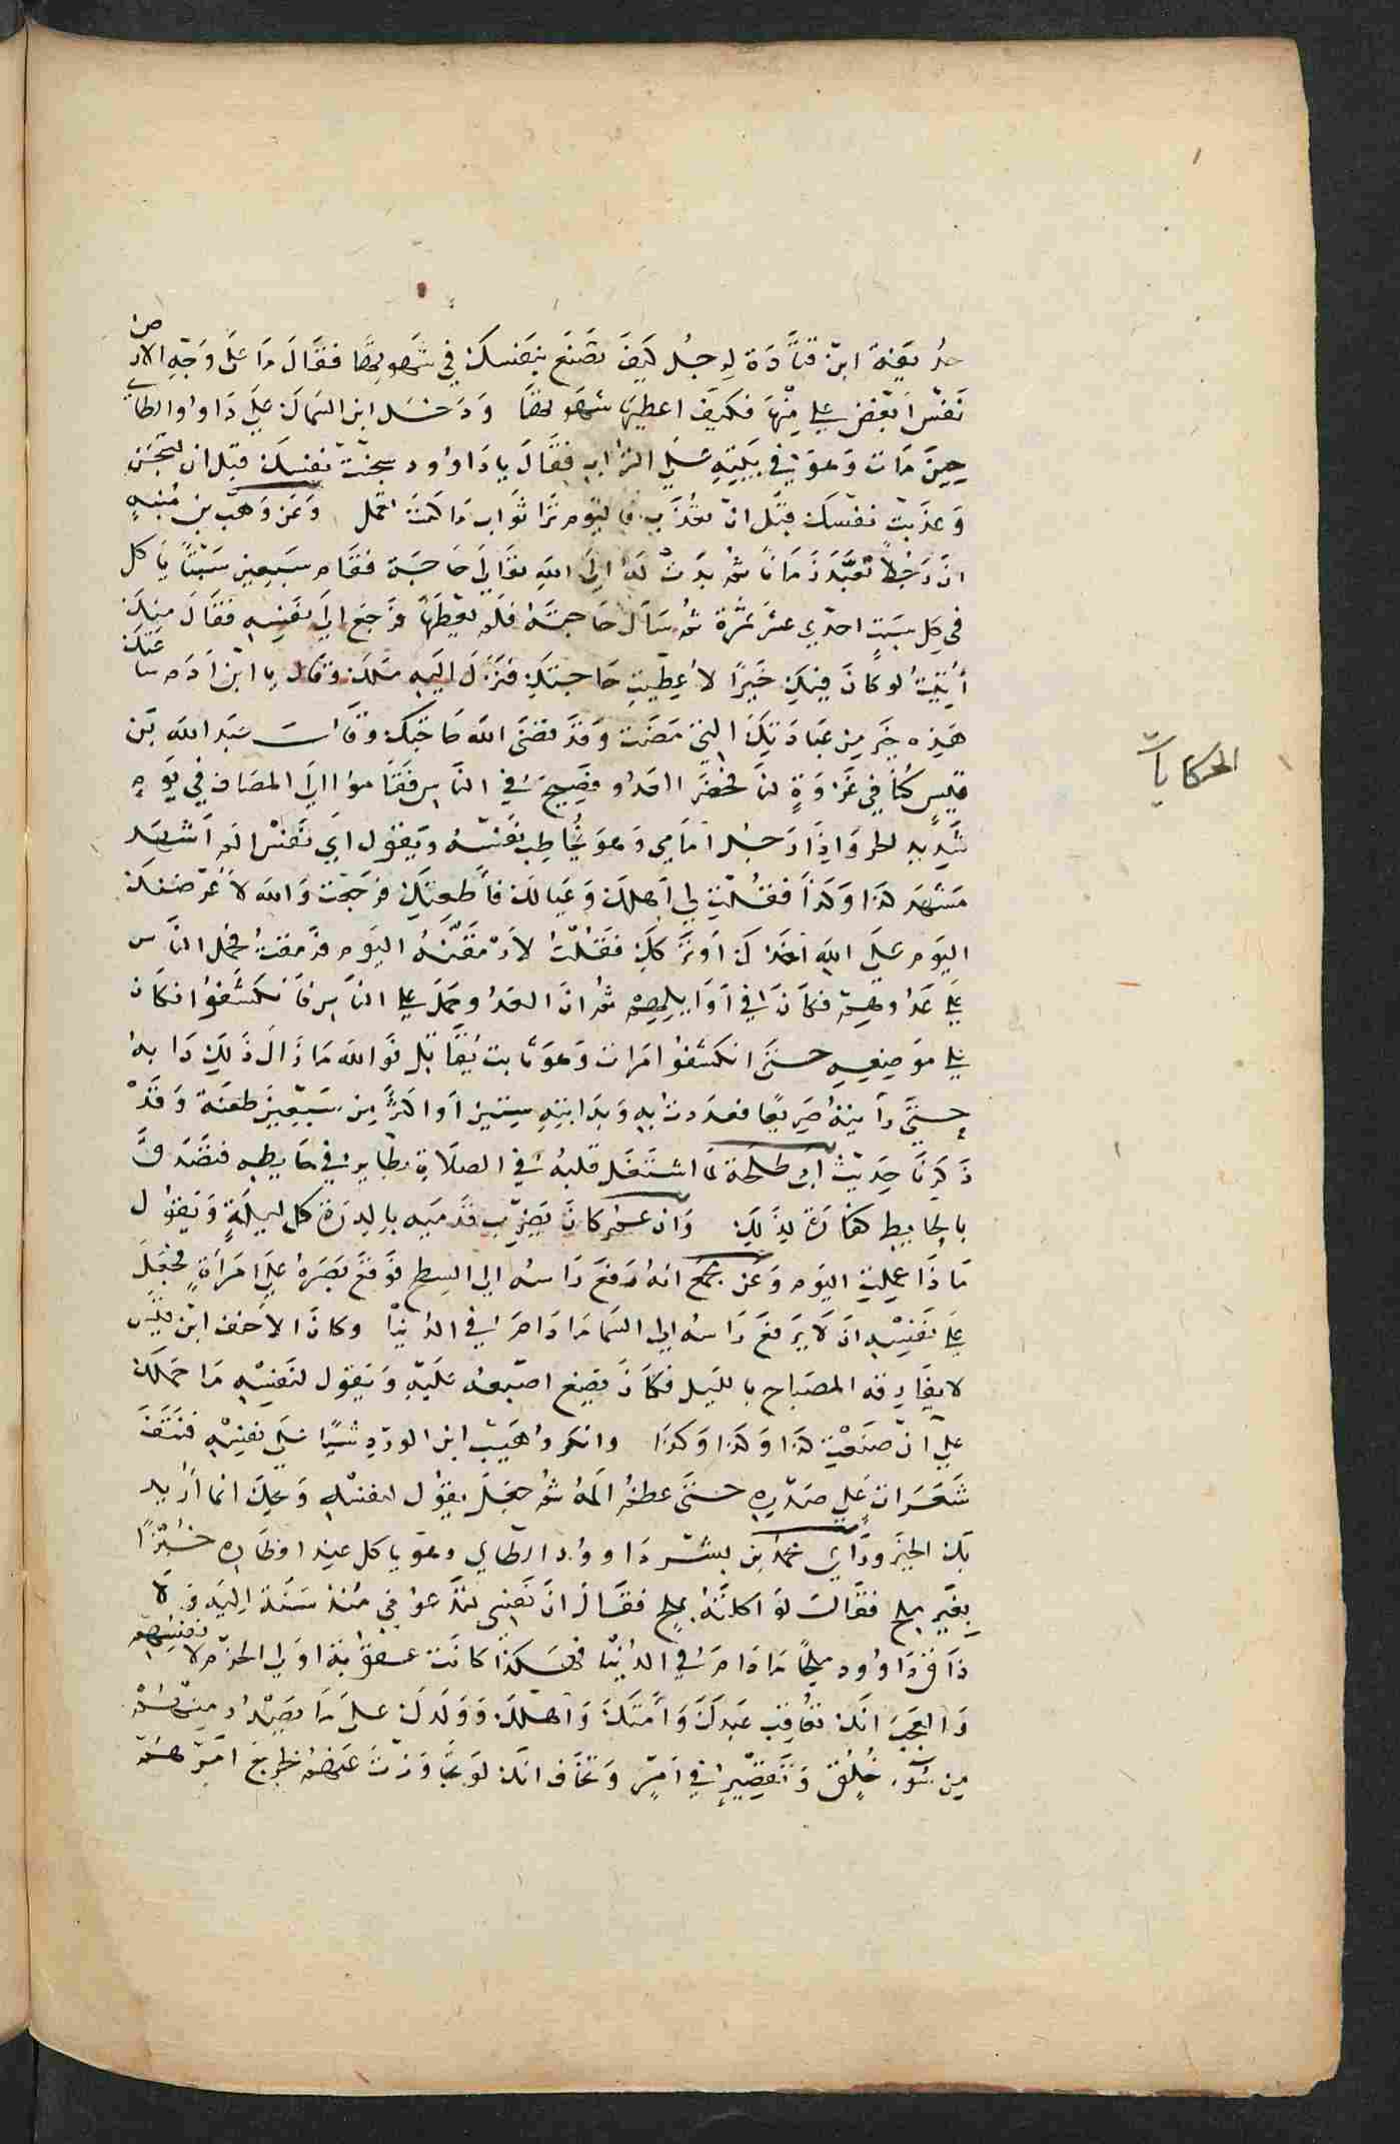 حذيفة ابن قتادة لرجل كيف تصنع بنفسك في شهواتها فقال ما على وجه الارض
نفس ابغض علي منها فكيف اعطيها شهواتها ودخل ابن السماك على داوود الطائي
حين مات وهو في بيته على التراب فقال يا داوود سجنت نفسك قبل ان تسجن
وعذبت نفسك قبل ان تعذب فاليوم ترا ثواب ما كنت تعمل وعن وهب بن منبه
ان رجلا تعبد زمانا ثم بدت له الى الله تعالى حاجة فقام سبعين سبتا ياكل
في كل سبت احدي عشر تمرة ثم سأل حاجته فلم يعطها فرجع الى نفسه فقال منك
أتيت لو كان فيك خيرا لاعطيت حاجتك فنزل اليه ملك وقال يا ابن آدم ساعتك
هذه خير من عبادتك التي مضت وقد قضى الله حاجتك وقال عبد الله بن
قيس كنا في غزوة لنا فحضر العدو فصيح في الناس فقاموا الى المصاف في يوم
شديد الحر واذا رجل امامي وهو يخاطب نفسه ويقول اي نفس الم اشهد
مشهد كذا وكذا فقلت لي اهلك وعيالك فاطعتك فرجعت والله لاعرضنك
اليوم على الله اخذك او تركك فقلت لارمقنه اليوم فرمقته فحمل الناس
على عدوهم فكان في اوايلهم ثم ان العدو حمل على الناس فانكشفوا فكان
في موضعه حتى انكشفوا مرات وهو ثابت يقاتل فوالله ما زال ذلك دابه
حتى رأيته صريعا فعددت به وبدابته ستين او اكثر من سبعين طعنة وقد
ذكرنا حديث أبي طلحة لما اشتغل قلبه في الصلاة بطاير في حايطه فتصدق
بالحايط كفارة لذلك وان عمر كان يضرب قدميه بالدرة كل ليلة ويقول
ماذا عملت اليوم وعن مجمع انه رفع راسه الى السطح فوقع بصره على امرأة فجعل
على نفسه ان لا يرفع راسه الى السما مادام في الدنيا وكان الاحنف ابن قيس
لا يفارقه المصباح بالليل فكان يضع اصبعه عليه ويقول لنفسه ما حملك
على ان صنعت كذا وكذا وانكر وهيب ابن الورد شيا على نفسه فنتف
شعرات على صدره حتى عظم الَمه ثم جعل يقول لنفسه ويحك انما اريد
بك الخير وراي محمد بن بشر داوود الطاي وهو ياكل عند افطاره خبزا
بغير ملح فقال لو اكلته بملح فقال ان نفسي لتدعوني منذ سنة اليه ولا
ذاق داوود ملحا مادام في الدنيا فهكذا كانت عقوبة اولي الحزم لانفسهم
والعجب انك تعاقب عبدك وامتك واهلك وولدك على ما يصدر منهم
من سوء خلق وتقصير في امر وتخاف انك لو تجاوزت عنهم لخرج امرهم
الحكايات